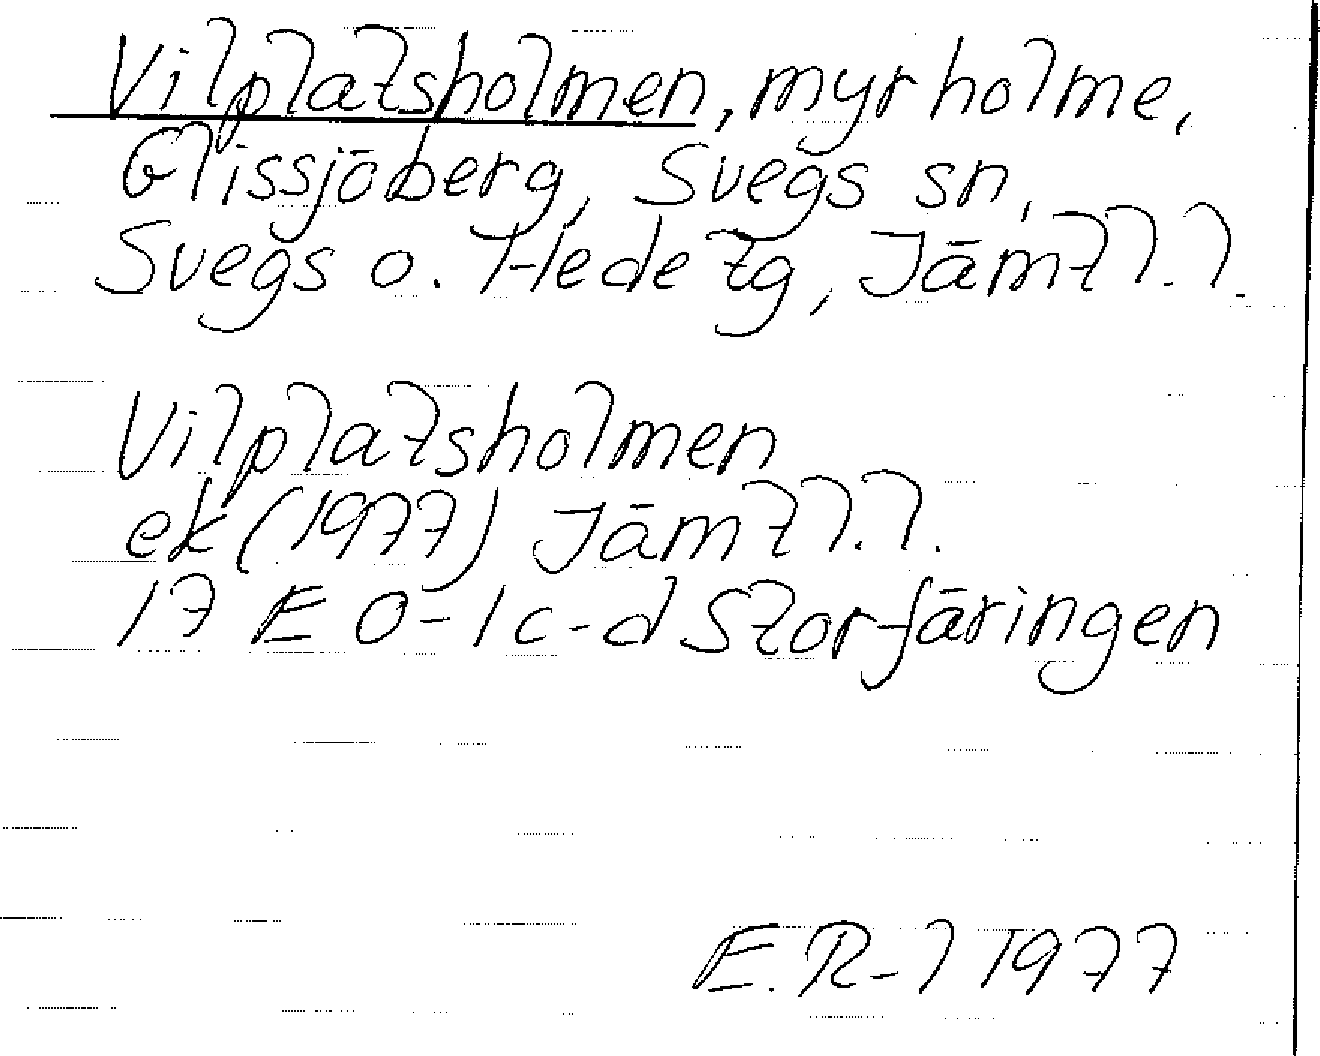 Vilplatsholmen, myrholme,
Glissjöberg, Svegs sn,
Svegs o. Hede tg, Jämtl.l.
Vilplatsholmen
ek (1977) Jämtl.l.
17 E 0-1 c-d Storfäringen
E.R-l 1977